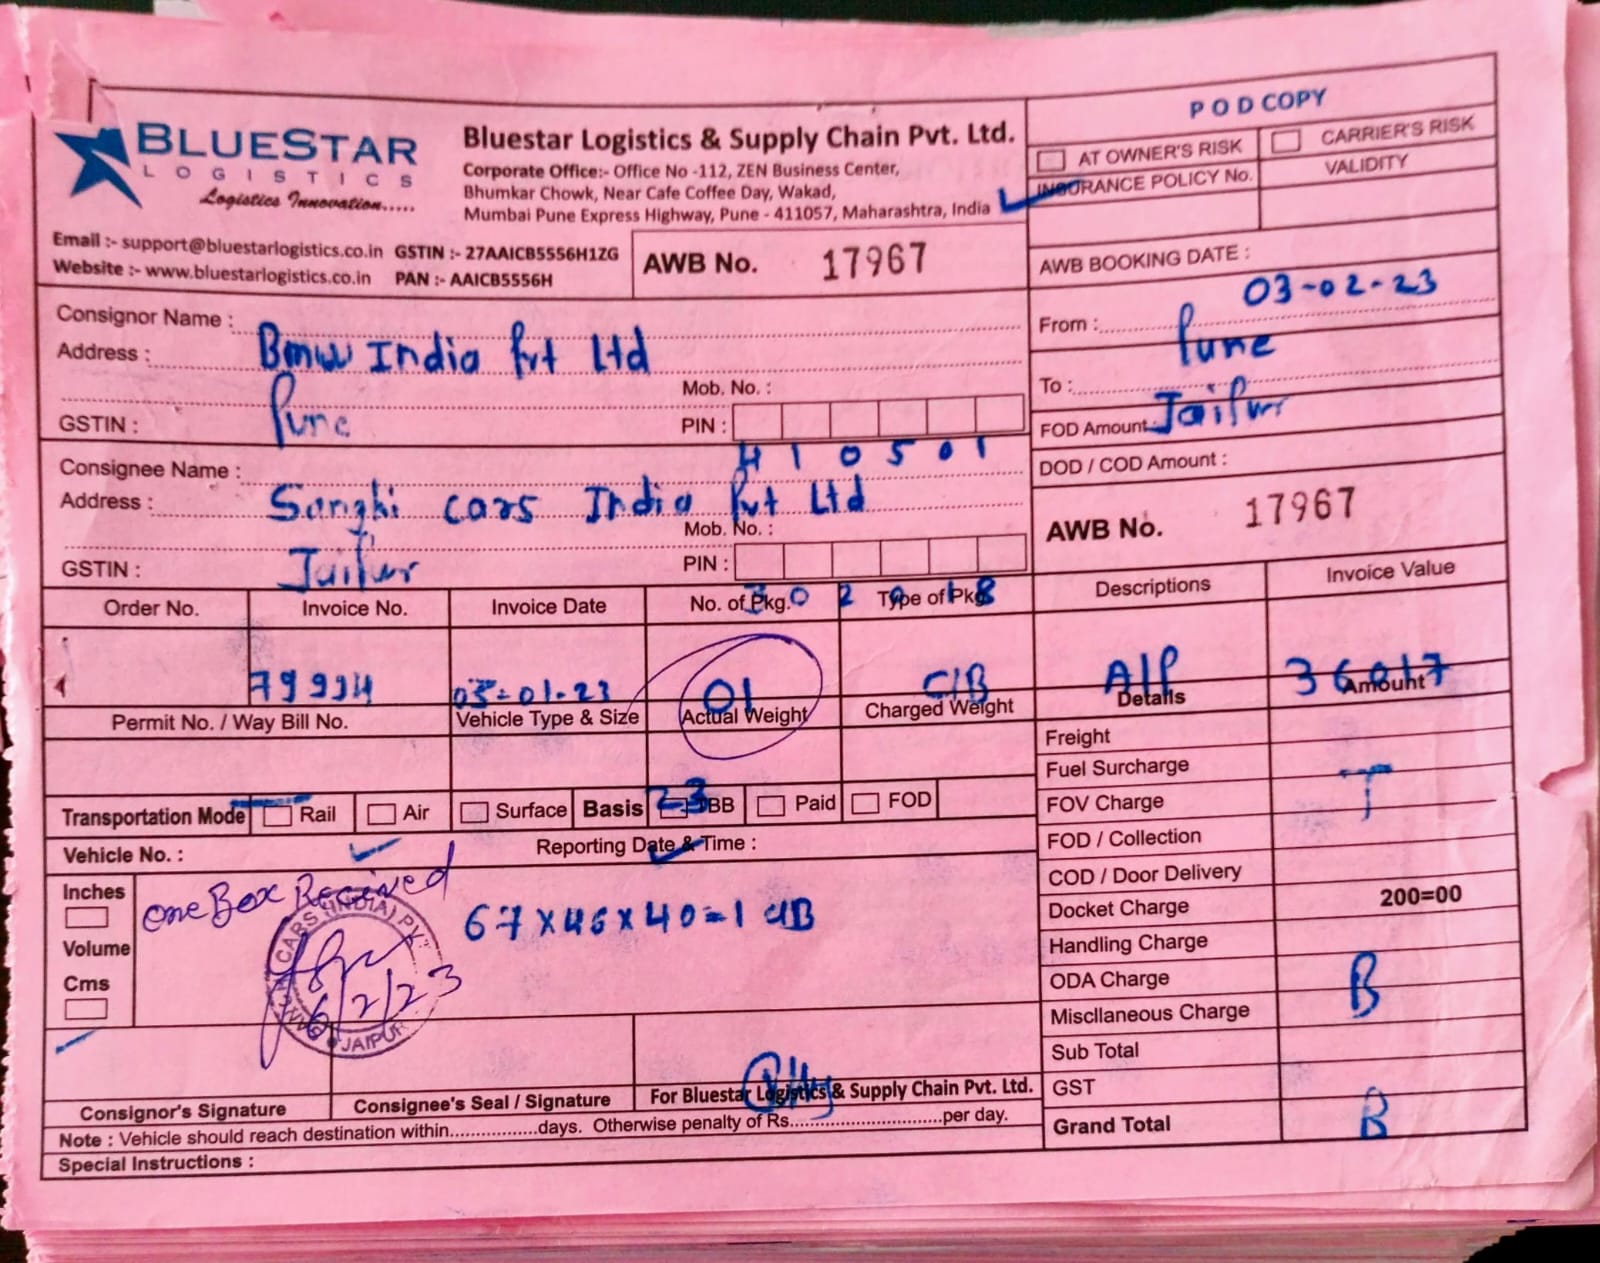 POD COPY
BLUESTAR
LOGISTICS
Logistics Innovation.....
Bluestar Logistics & Supply Chain Pvt. Ltd.
Corporate Office:- Office No -112, ZEN Business Center,
Bhumkar Chowk, Near Cafe Coffee Day, Wakad,
Mumbai Pune Express Highway, Pune - 411057, Maharashtra, India
AT OWNER'S RISK CARRIER'S RISK
INSURANCE POLICY No. VALIDITY
Email :- support@bluestarlogistics.co.in GSTIN :- 27AAICB5556H1ZG
Website :- www.bluestarlogistics.co.in PAN :- AAICB5556H
AWB No. 17967
AWB BOOKING DATE :
03-02-23
Consignor Name :
Address : Bmw India Pvt Ltd
Mob. No. :
GSTIN : Pune PIN :
410501
From : Pune
To :
Jaipur
FOD Amount
DOD / COD Amount :
AWB No. 17967
Consignee Name :
Address : Sanghi cars India Pvt Ltd
Mob. No. :
GSTIN : Jaipur PIN :
302018
Order No. Invoice No. Invoice Date No. of Pkg. Type of Pkg. Descriptions Invoice Value
79994 03-01-23 01 C/B A/P 36017
Permit No. / Way Bill No. Vehicle Type & Size Actual Weight Charged Weight Details Amount
23
Transportation Mode Rail Air Surface Basis TBB Paid FOD
Vehicle No. : Reporting Date & Time :
Inches
Volume
Cms
One Box Received
67x46x40=1 C/B
CARS (INDIA) PVT
JAIPUR
6/2/23
Freight
Fuel Surcharge
T
FOV Charge
FOD / Collection
COD / Door Delivery
Docket Charge 200=00
Handling Charge
ODA Charge
B
Miscllaneous Charge
Sub Total
GST
Grand Total B
Consignor's Signature Consignee's Seal / Signature For Bluestar Logistics & Supply Chain Pvt. Ltd.
Note : Vehicle should reach destination within.................days. Otherwise penalty of Rs.............................per day.
Special Instructions :